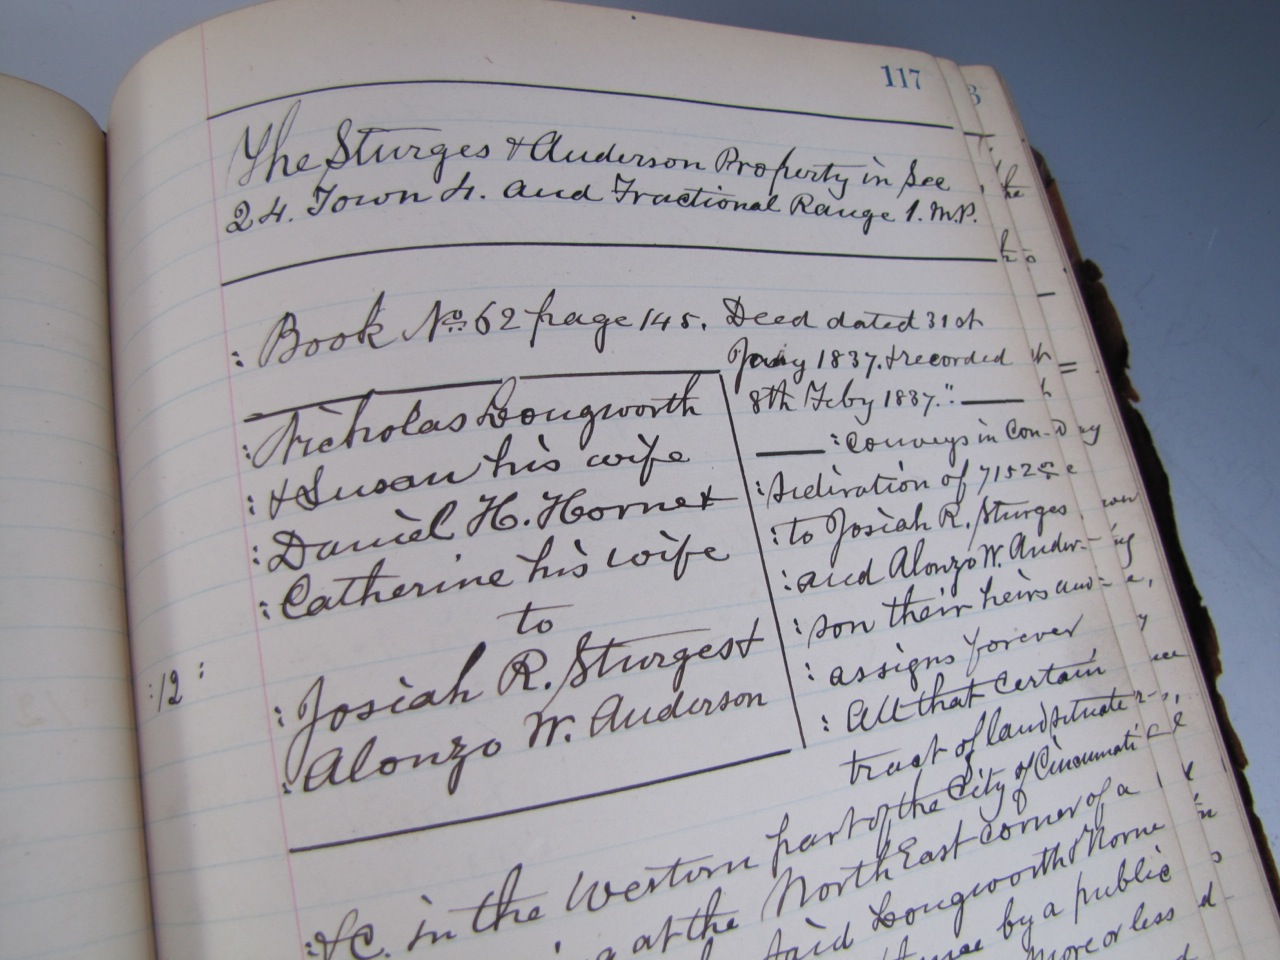 117
The Sturges & Anderson Property in Sec
24. Town 4. and Fractional Range 1. M.P.
Book No. 62 page 145. Deed dated 31st
Jany 1837. & recorded
8th Feby 1837.
Nicholas Longworth
& Susan his wife
Daniel H. Horne &
Catherine his wife
to
Josiah R. Sturges &
Alonzo W. Anderson
:12:
: Conveys in Con-
:sideration of 7152
:to Josiah R. Sturges
:and Alonzo W. Ander-
:son their heirs and
:assigns forever
:All that certain
tract of land situate
:&C. in the Western part of the City of Cincinnati
at the North East corner of a
said Longworth & Horne
by a public
more or less